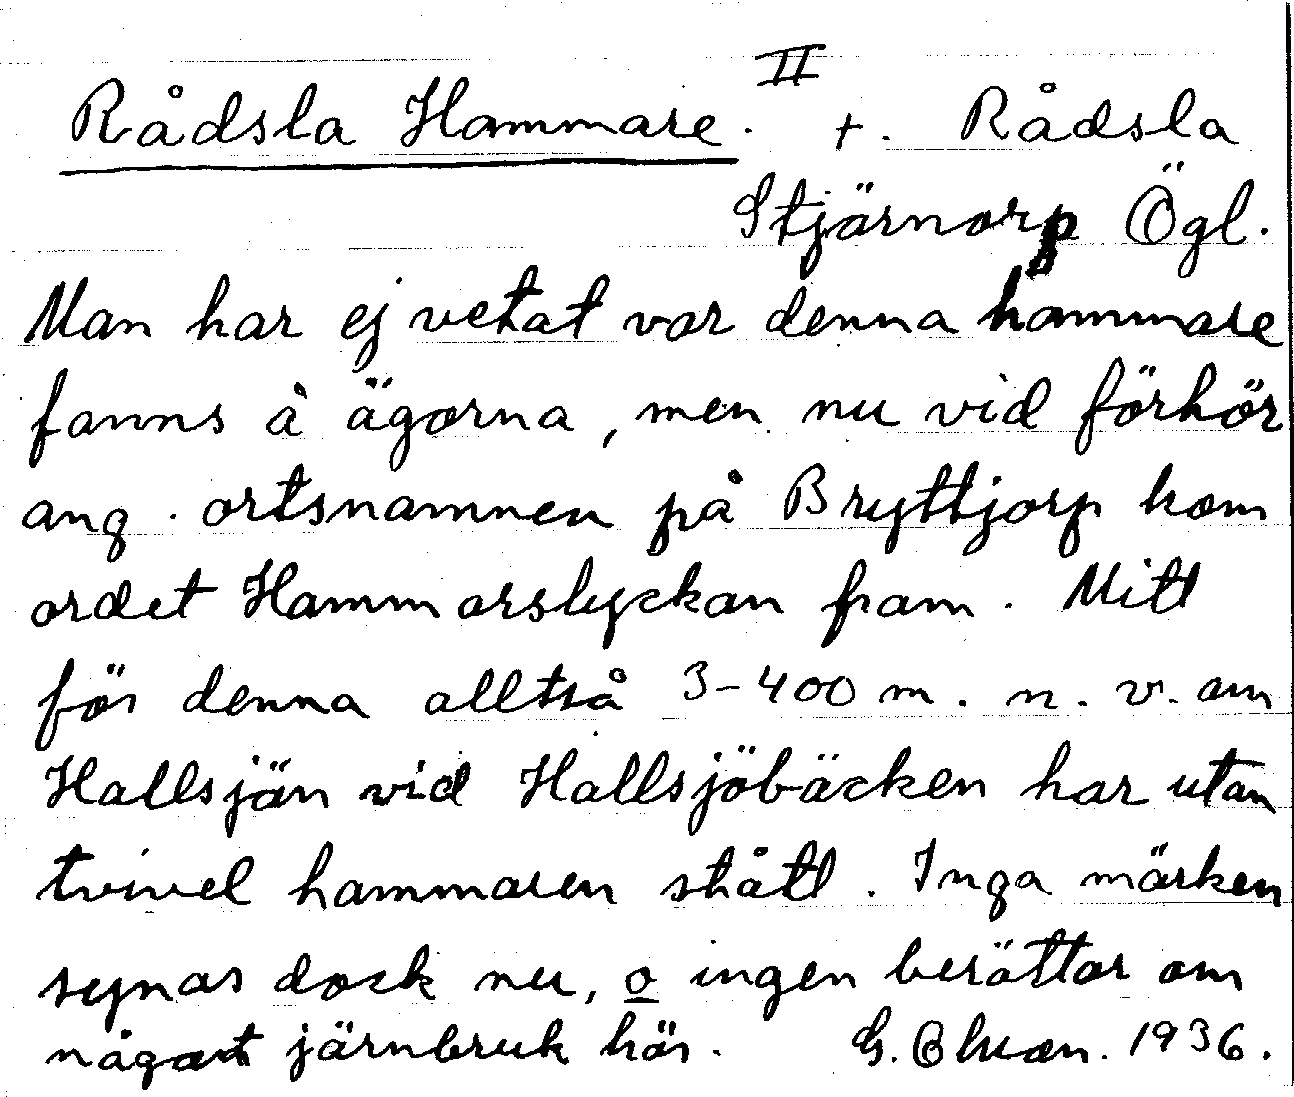 Rådsla Hammare. II +. Rådsla
Stjärnorp Ögl.
Man har ej vetat var denna hammare
fanns å ägorna, men nu vid förhör
ang. ortsnamnen på Bryttjorp kom
ordet Hammarslyckan fram. Mitt
för denna alltså 3-400 m. n. v. om
Hallsjön vid Hallsjöbäcken har utan
tvivel hammaren stått. Inga märken
synas dock nu, o ingen berättar om
något järnbruk här. G. 1936.